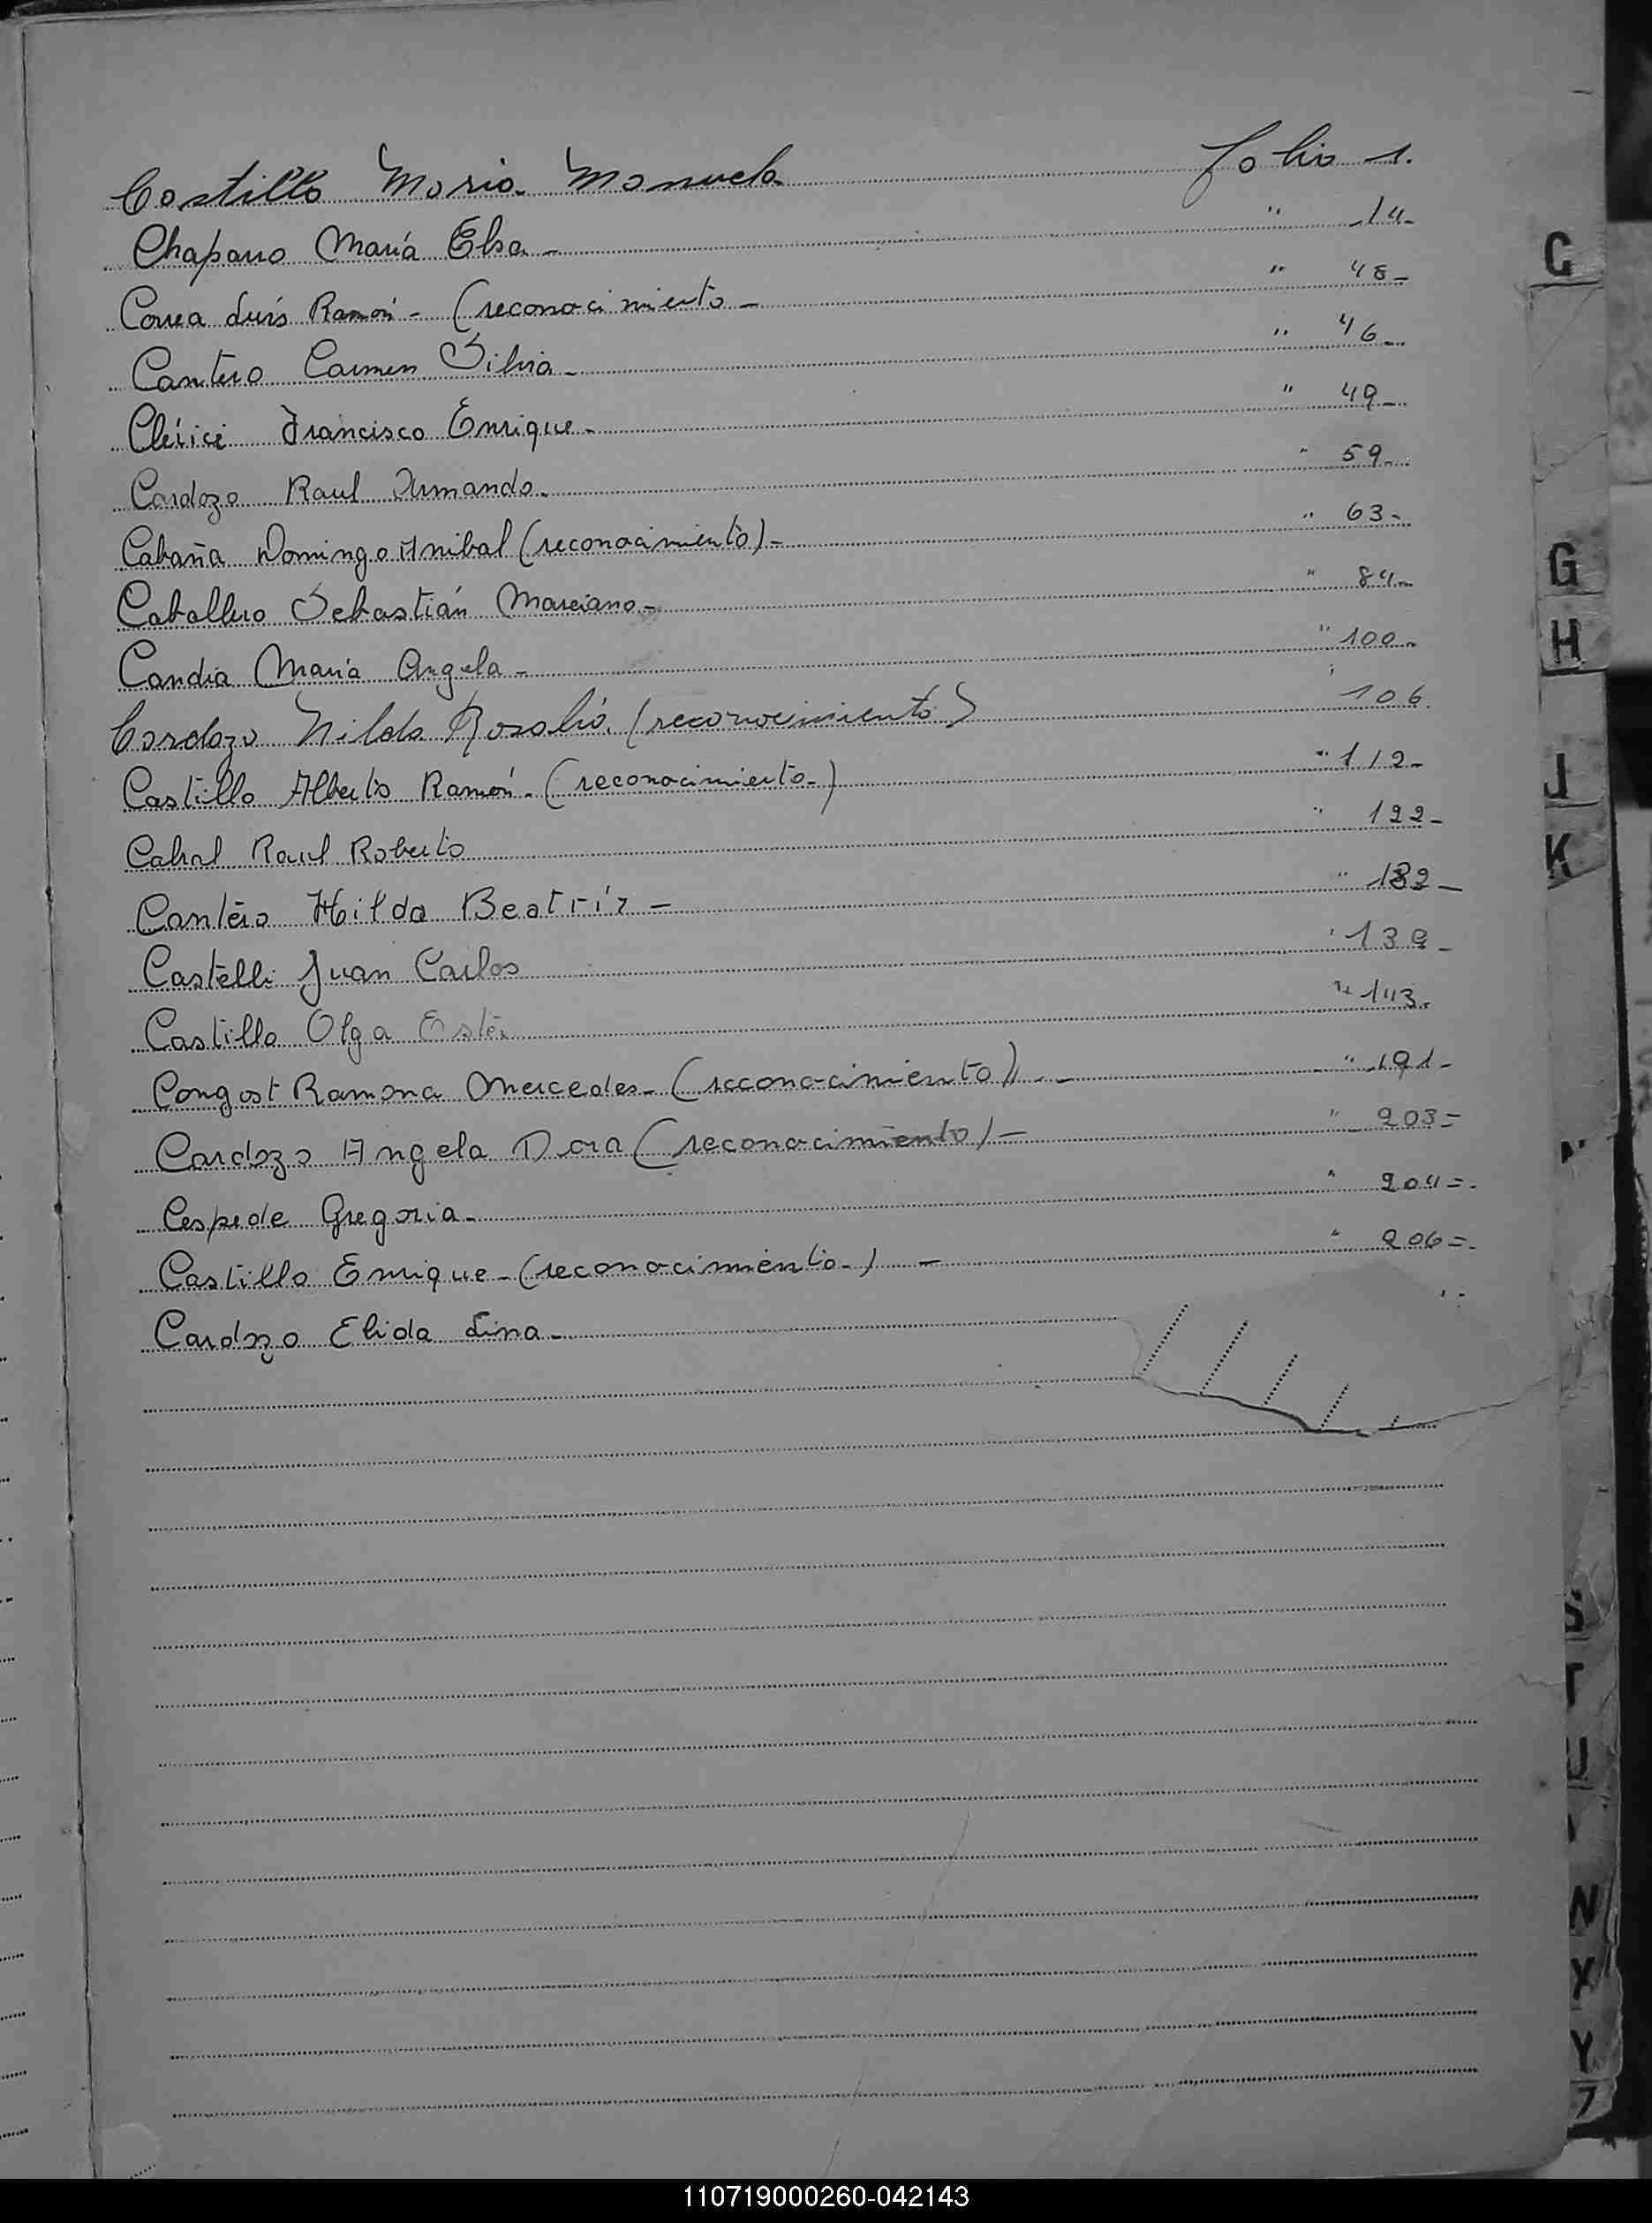 Castillo Maria Manuela folio 1.
Chaparro María Elsa - " 14-
Correa Luis Ramón - (reconocimiento - " 48-
Cantero Carmen Silvia - " 46-
Clérici Francisco Enrique - " 49-
Cardozo Raul Armando - " 59-
Cabaña Domingo Anibal (reconocimiento) - " 63-
Caballero Sebastián Marciano - " 84-
Candia María Angela - " 100-
Cardozo Nilda Rosalia. (reconocimiento) " 106.
Castillo Alberto Ramón - (reconocimiento-) " 112-
Cabral Raul Roberto " 122-
Cantero Hilda Beatríz - " 132-
Castelli Juan Carlos " 139-
Castillo Olga Ester " 143.
Congost Ramona Mercedes - (reconocimiento) - " 191-
Cardozo Angela Dora (reconocimiento) - " 203=
Cespede Gregoria - " 204=
Castillo Enrique - (reconocimiento-) - " 206=
Cardozo Elida Lina -
C
G
H
J
K
S
T
U
N
X
Y
Z
110719000260-042143